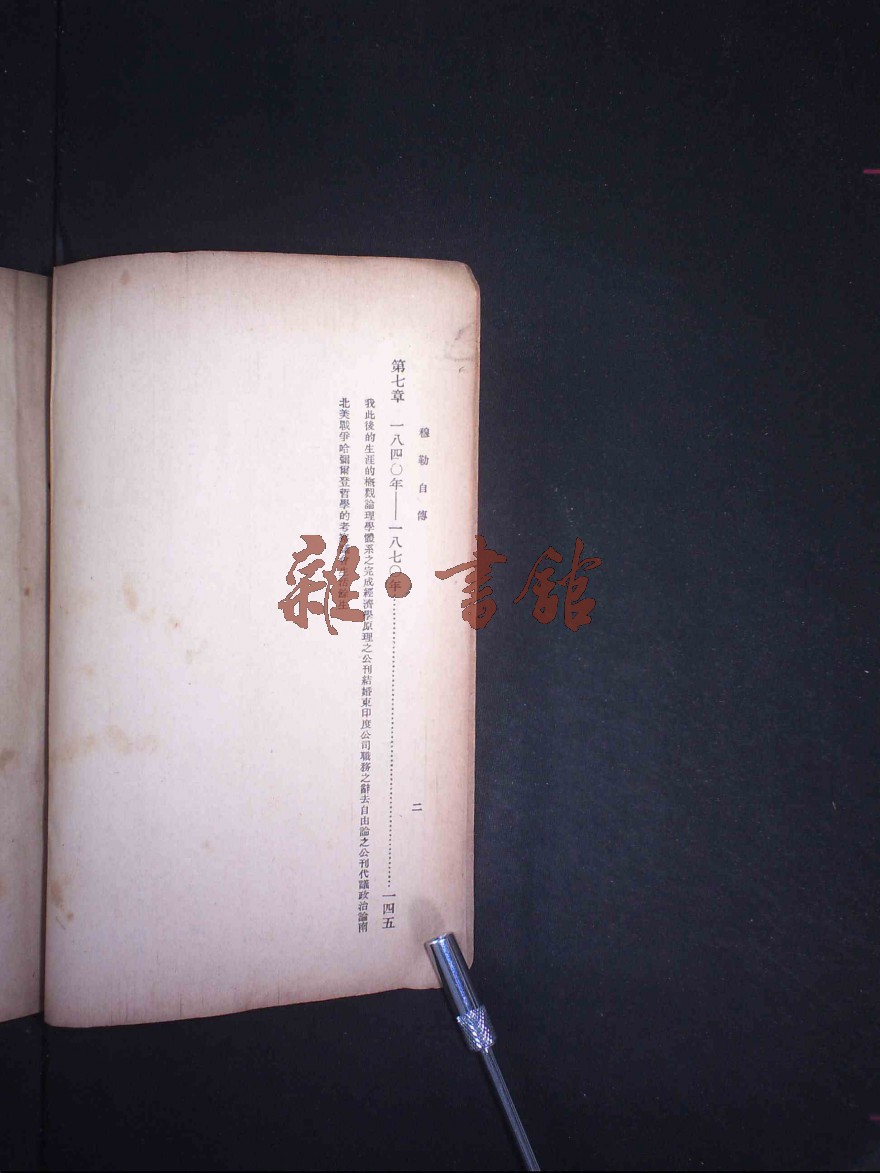 穆勒自傳
二
第七章 一八四〇年——一八七〇年……一四五
我此後的生涯的概觀論理學體系之完成經濟學原理之公刊結婚東印度公司職務之辭去自由論之公刊代議政治論南
北美戰爭哈彌爾登哲學的考
雜·書館